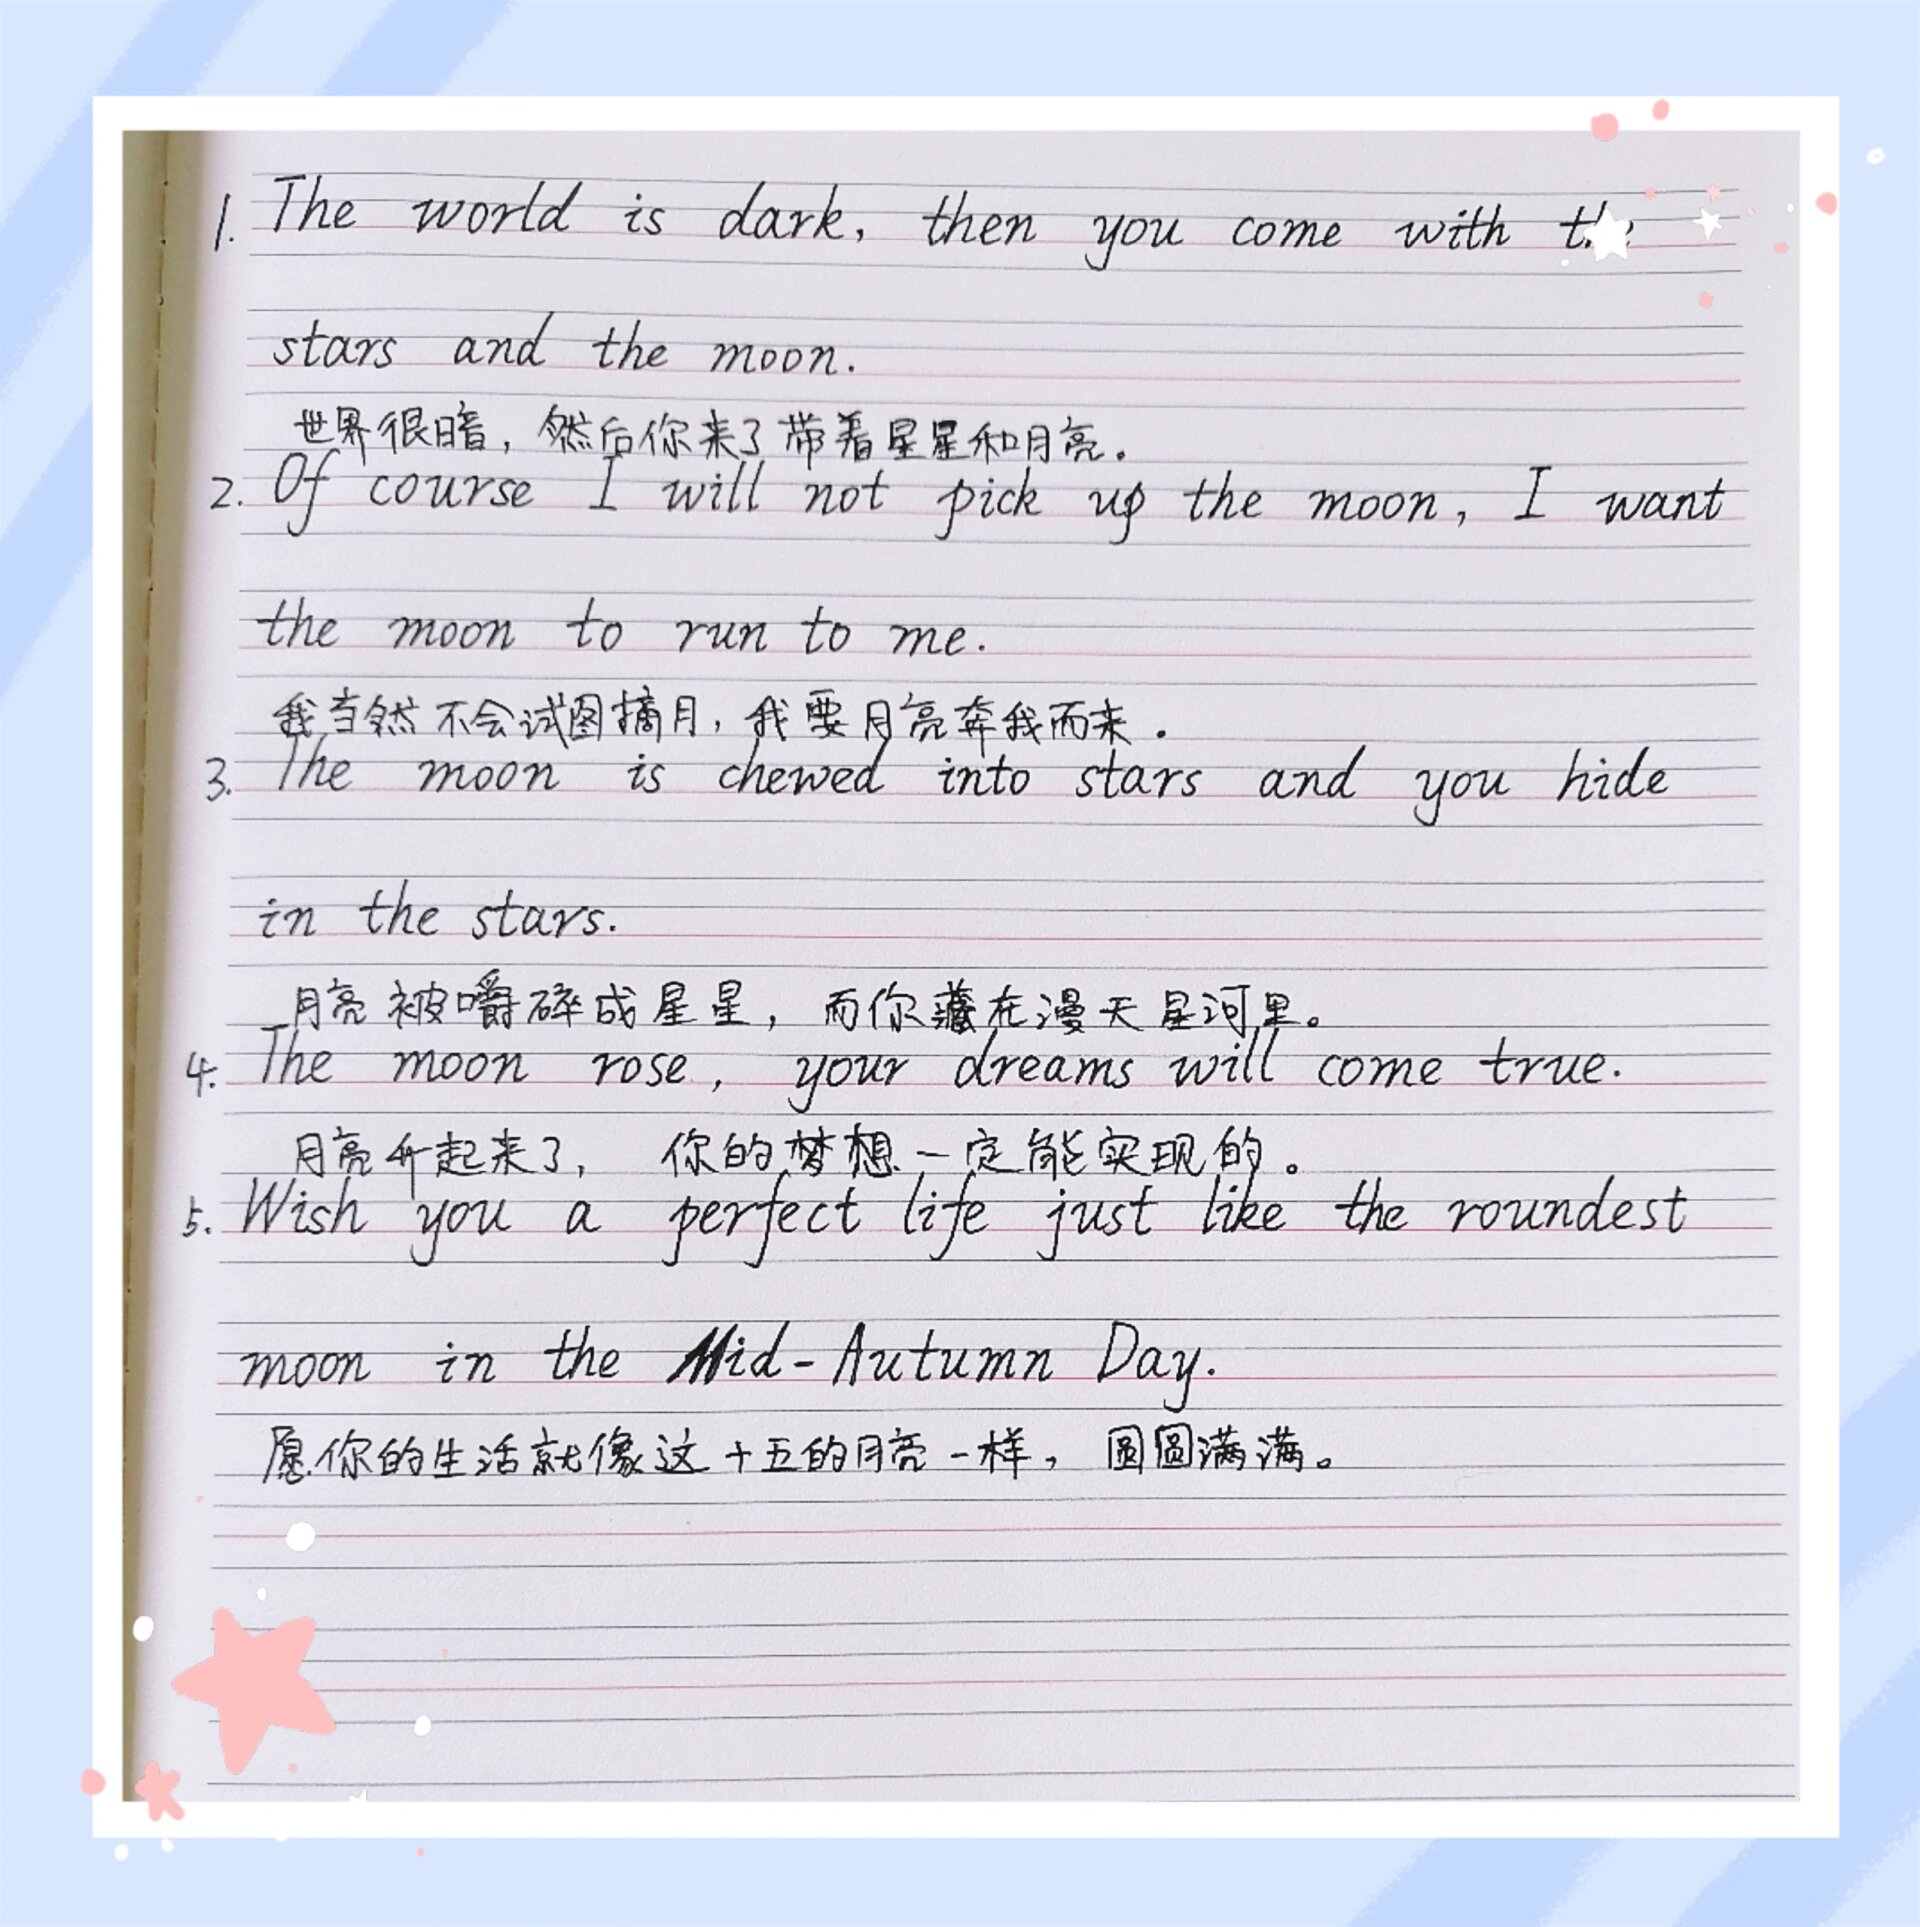 1. The world is dark, then you come with the
stars and the moon.
世界很暗，然后你来了带着星星和月亮。
2. Of course I will not pick up the moon, I want
the moon to run to me.
我当然不会试图摘月，我要月亮奔我而来.
3. The moon is chewed into stars and you hide
in the stars.
月亮被嚼碎成星星，而你藏在漫天星河里。
4. The moon rose, your dreams will come true.
月亮升起来了，你的梦想一定能实现的。
5. Wish you a perfect life just like the roundest
moon in the Mid-Autumn Day.
愿你的生活就像这十五的月亮一样，圆圆满满。